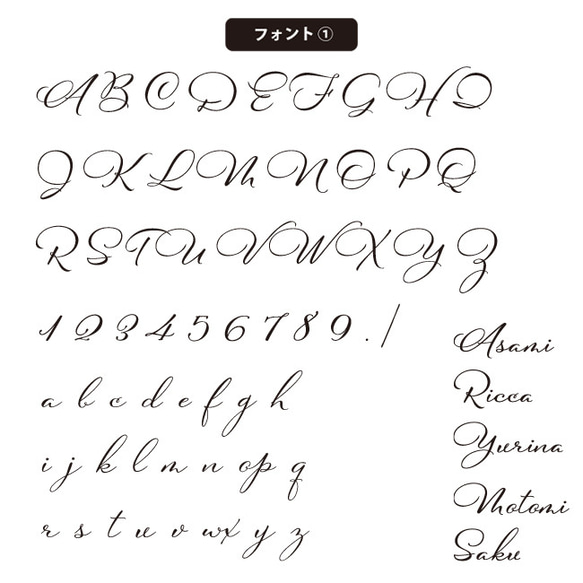 フォント①
A B C D E F G H I
J K L M N O P Q
R S T U V W X Y Z
1 2 3 4 5 6 7 8 9 . /
a b c d e f g h
i j k l m n o p q
r s t u v w x y z
Asami
Ricca
Yurina
Motomi
Saku